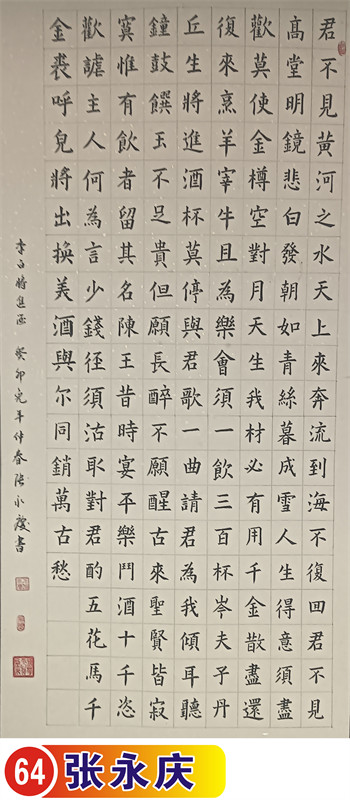 君不見黃河之水天上來奔流到海不復回君不見
高堂明鏡悲白發朝如青絲暮成雪人生得意須盡
歡莫使金樽空對月天生我材必有用千金散盡還
復來烹羊宰牛且為樂會須一飲三百杯岑夫子丹
丘生將進酒杯莫停與君歌一曲請君為我傾耳聽
鐘鼓饌玉不足貴但願長醉不願醒古來聖賢皆寂
寞惟有飲者留其名陳王昔時宴平樂鬥酒十千恣
歡謔主人何為言少錢径須沽取對君酌五花馬千
金裘呼兒將出換美酒與尔同銷萬古愁
李白將進酒 癸卯兔年仲春張永慶書
64 张永庆